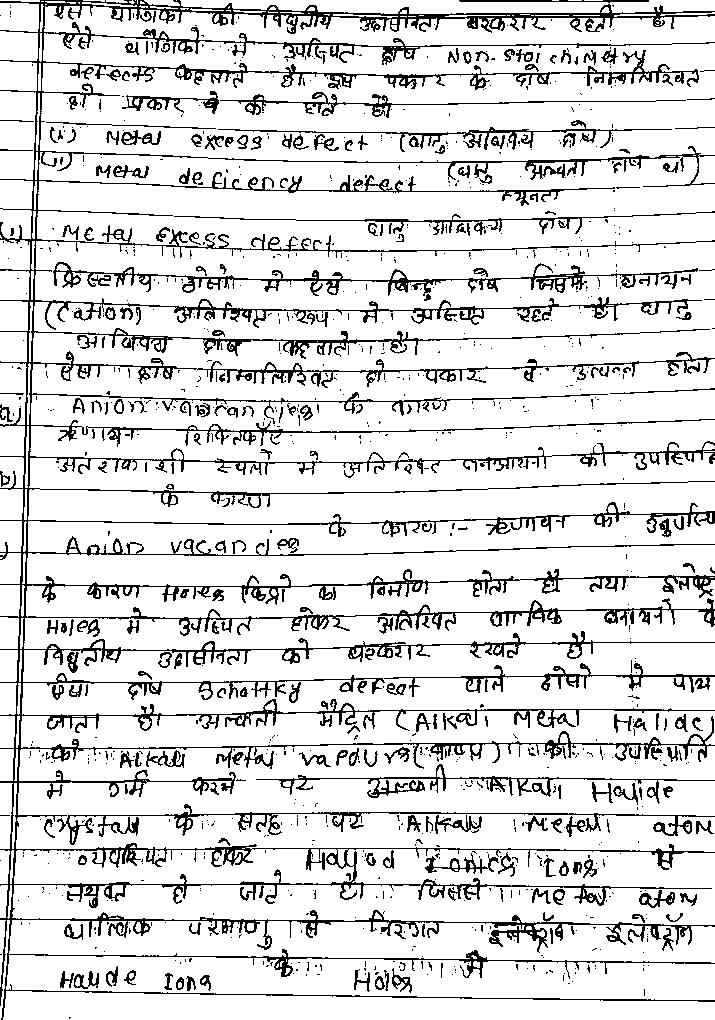 ऐसे यौगिको की विधुतीय उदासीनता बरकरार रहती है।
ऐसे यौगिको में उपस्थित दोष Non-stoichimetry
defects कहलाते है। इस प्रकार के दोष निम्नलिखित
दो प्रकार के होते है।
(i) Metal excess defect (धातु आधिक्य दोष)
(ii) Metal deficency defect (धातु अल्पता दोष या)
न्यूनता
(i) Metal excess defect धातु आधिक्य दोष)
क्रिस्टलीय ठोसों में ऐसे बिन्दु दोष जिसमें धनायन
(Cation) अतिरिक्त रूप में उपस्थित रहते है। धातु
आधिक्य दोष कहलाते है।
ऐसा दोष निम्नलिखित दो प्रकार से उत्पन्न होता
(a) Anion vacancies के कारण
ऋणायन रिक्तिकाएँ
(b) अंतराकाशी स्थलों में अतिरिक्त धनआयनो की उपस्थिति
के कारण
Anion vacancies के कारण :- ऋणायन की अनुपस्थि
के कारण Holes छिद्रो का निर्माण होता है। तथा इलेक्ट्रॉ
Holes में उपस्थित होकर अतिरिक्त धात्विक धनायनो के
विधुतीय उदासीनता को बरकरार रखते है।
ऐसा दोष Schottky defect वाले ठोसो में पाय
जाता है। अल्कली (Alkali Metal Halide)
को Alkali Metal vapours (वाष्प) की उपस्थिति
में गर्म करने पर Alkali Halide
crystal के सतह पर Alkali Metal atom
व्यवस्थित होकर Ions से
सयुक्त हो जाते है। जिससे Metal atom
धात्विक परमाणु से निरगत इलेक्ट्रॉन
Halide Ions के Holes में